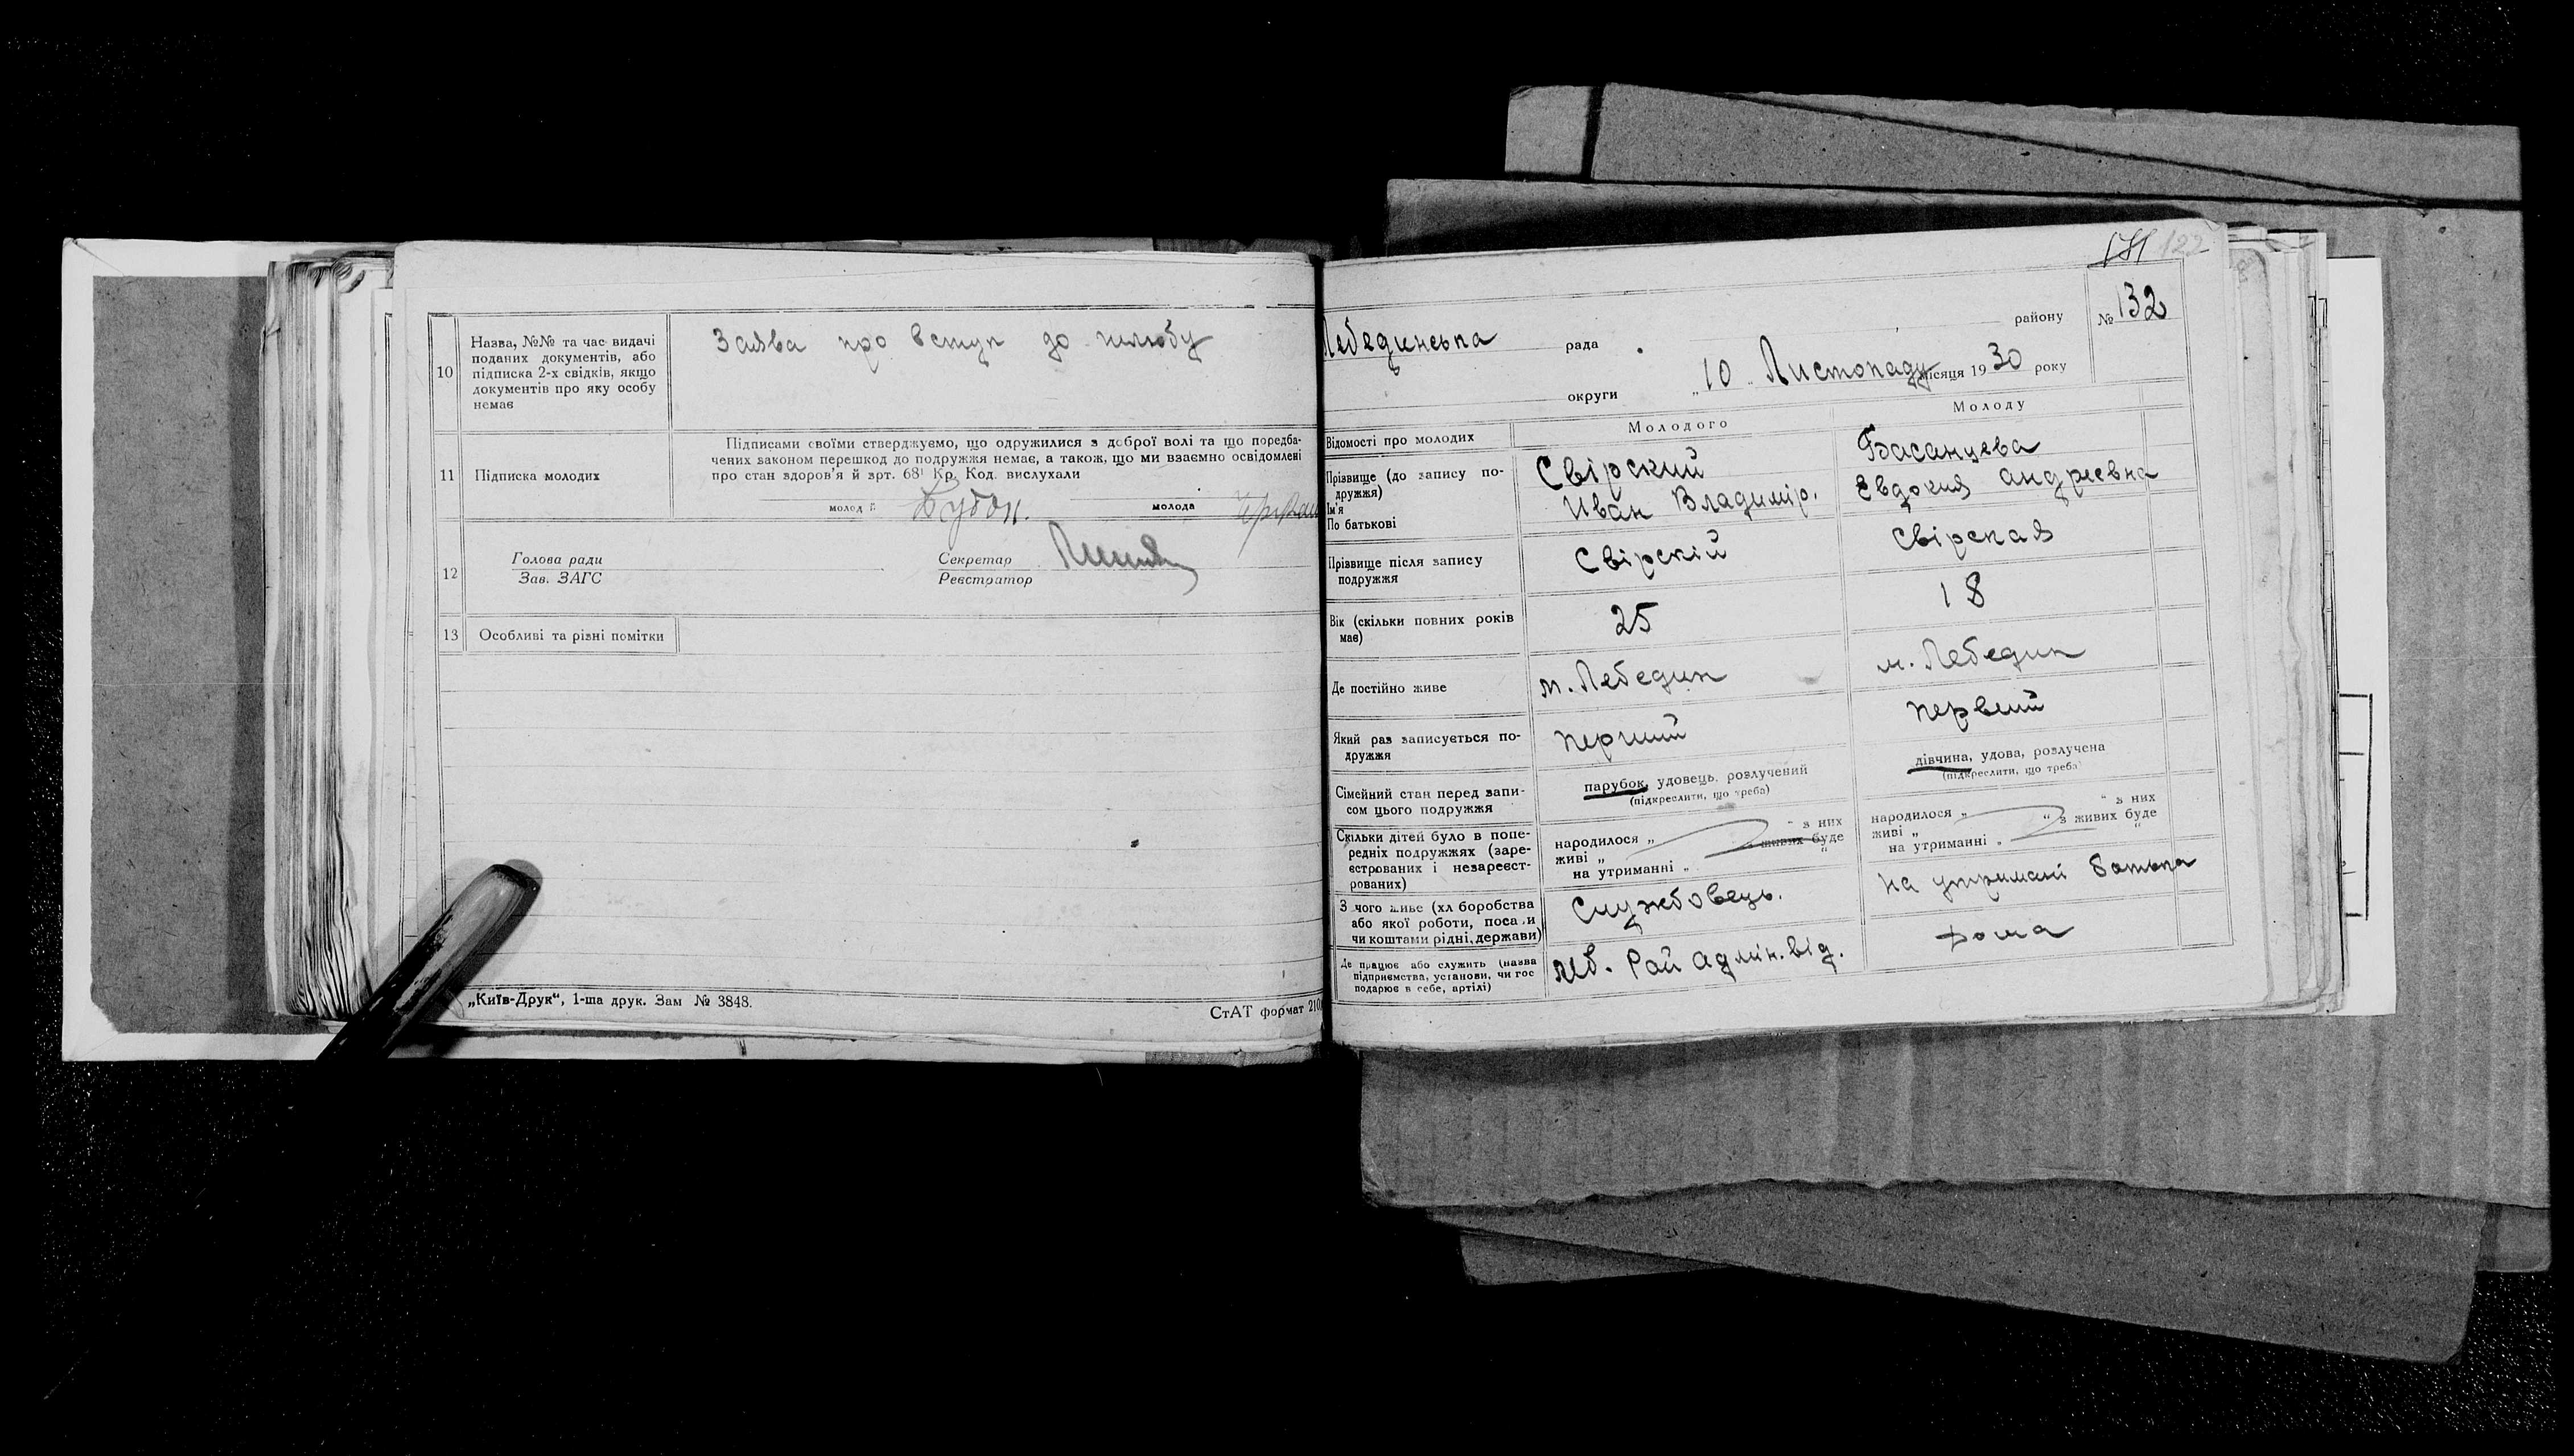 10
Назва, №№ та час видачі
поданих документів, або
підписка 2-х свідків, якщо
документів про яку особу
немає
Заява про вступ до шлюбу
11
Підписка молодих
Підписами своїми стверджуємо, що одружилися з доброї волі та що передба-
чених законом перешкод до подружжя немає, а також, що ми взаємно освідомлені
про стан здоров'я й арт. 68¹ Кр. Код. вислухали
молодий
молода
12
Голова ради
Зав. ЗАГС
Секретар
Реєстратор
13 Особливі та різні помітки
„Київ-Друк“, 1-ша друк. Зам № 3848.
СтАТ формат 210
122
Лебединська рада
району
№ 132
округи
„10„ Листопаду місяця 1930 року
Відомості про молодих
Молодого
Молоду
Прізвище (до запису по-
дружжя)
Ім'я
По батькові
Свірский
Иван Владимір.
Басанцева
Евдокия Андреевна
Прізвище після запису
подружжя
Свірскій
Свірская
Вік (скільки повних років
має)
25
18
Де постійно живе
м. Лебедин
м. Лебедин
Який раз записується по-
дружжя
перший
первий
Сімейний стан перед запи-
сом цього подружжя
парубок, удовець, розлучений
(підкреслити, що треба)
дівчина, удова, розлучена
(підкреслити, що треба)
Скільки дітей було в попе-
редніх подружжях (заре-
єстрованих і незареєст-
рованих)
народилося „ “ з них
живі „ “ з живих буде
на утриманні „ “
народилося „ “ з них
живі „ “ з живих буде
на утриманні „ “
З чого живе (хліборобства
або якої роботи, посади
чи коштами рідні, держави)
Службовець.
на утримані батька
Де працює або служить (назва
підприємства, установи, чи гос
подарює в себе, артілі)
Леб. Рай Адмін. від.
Дома